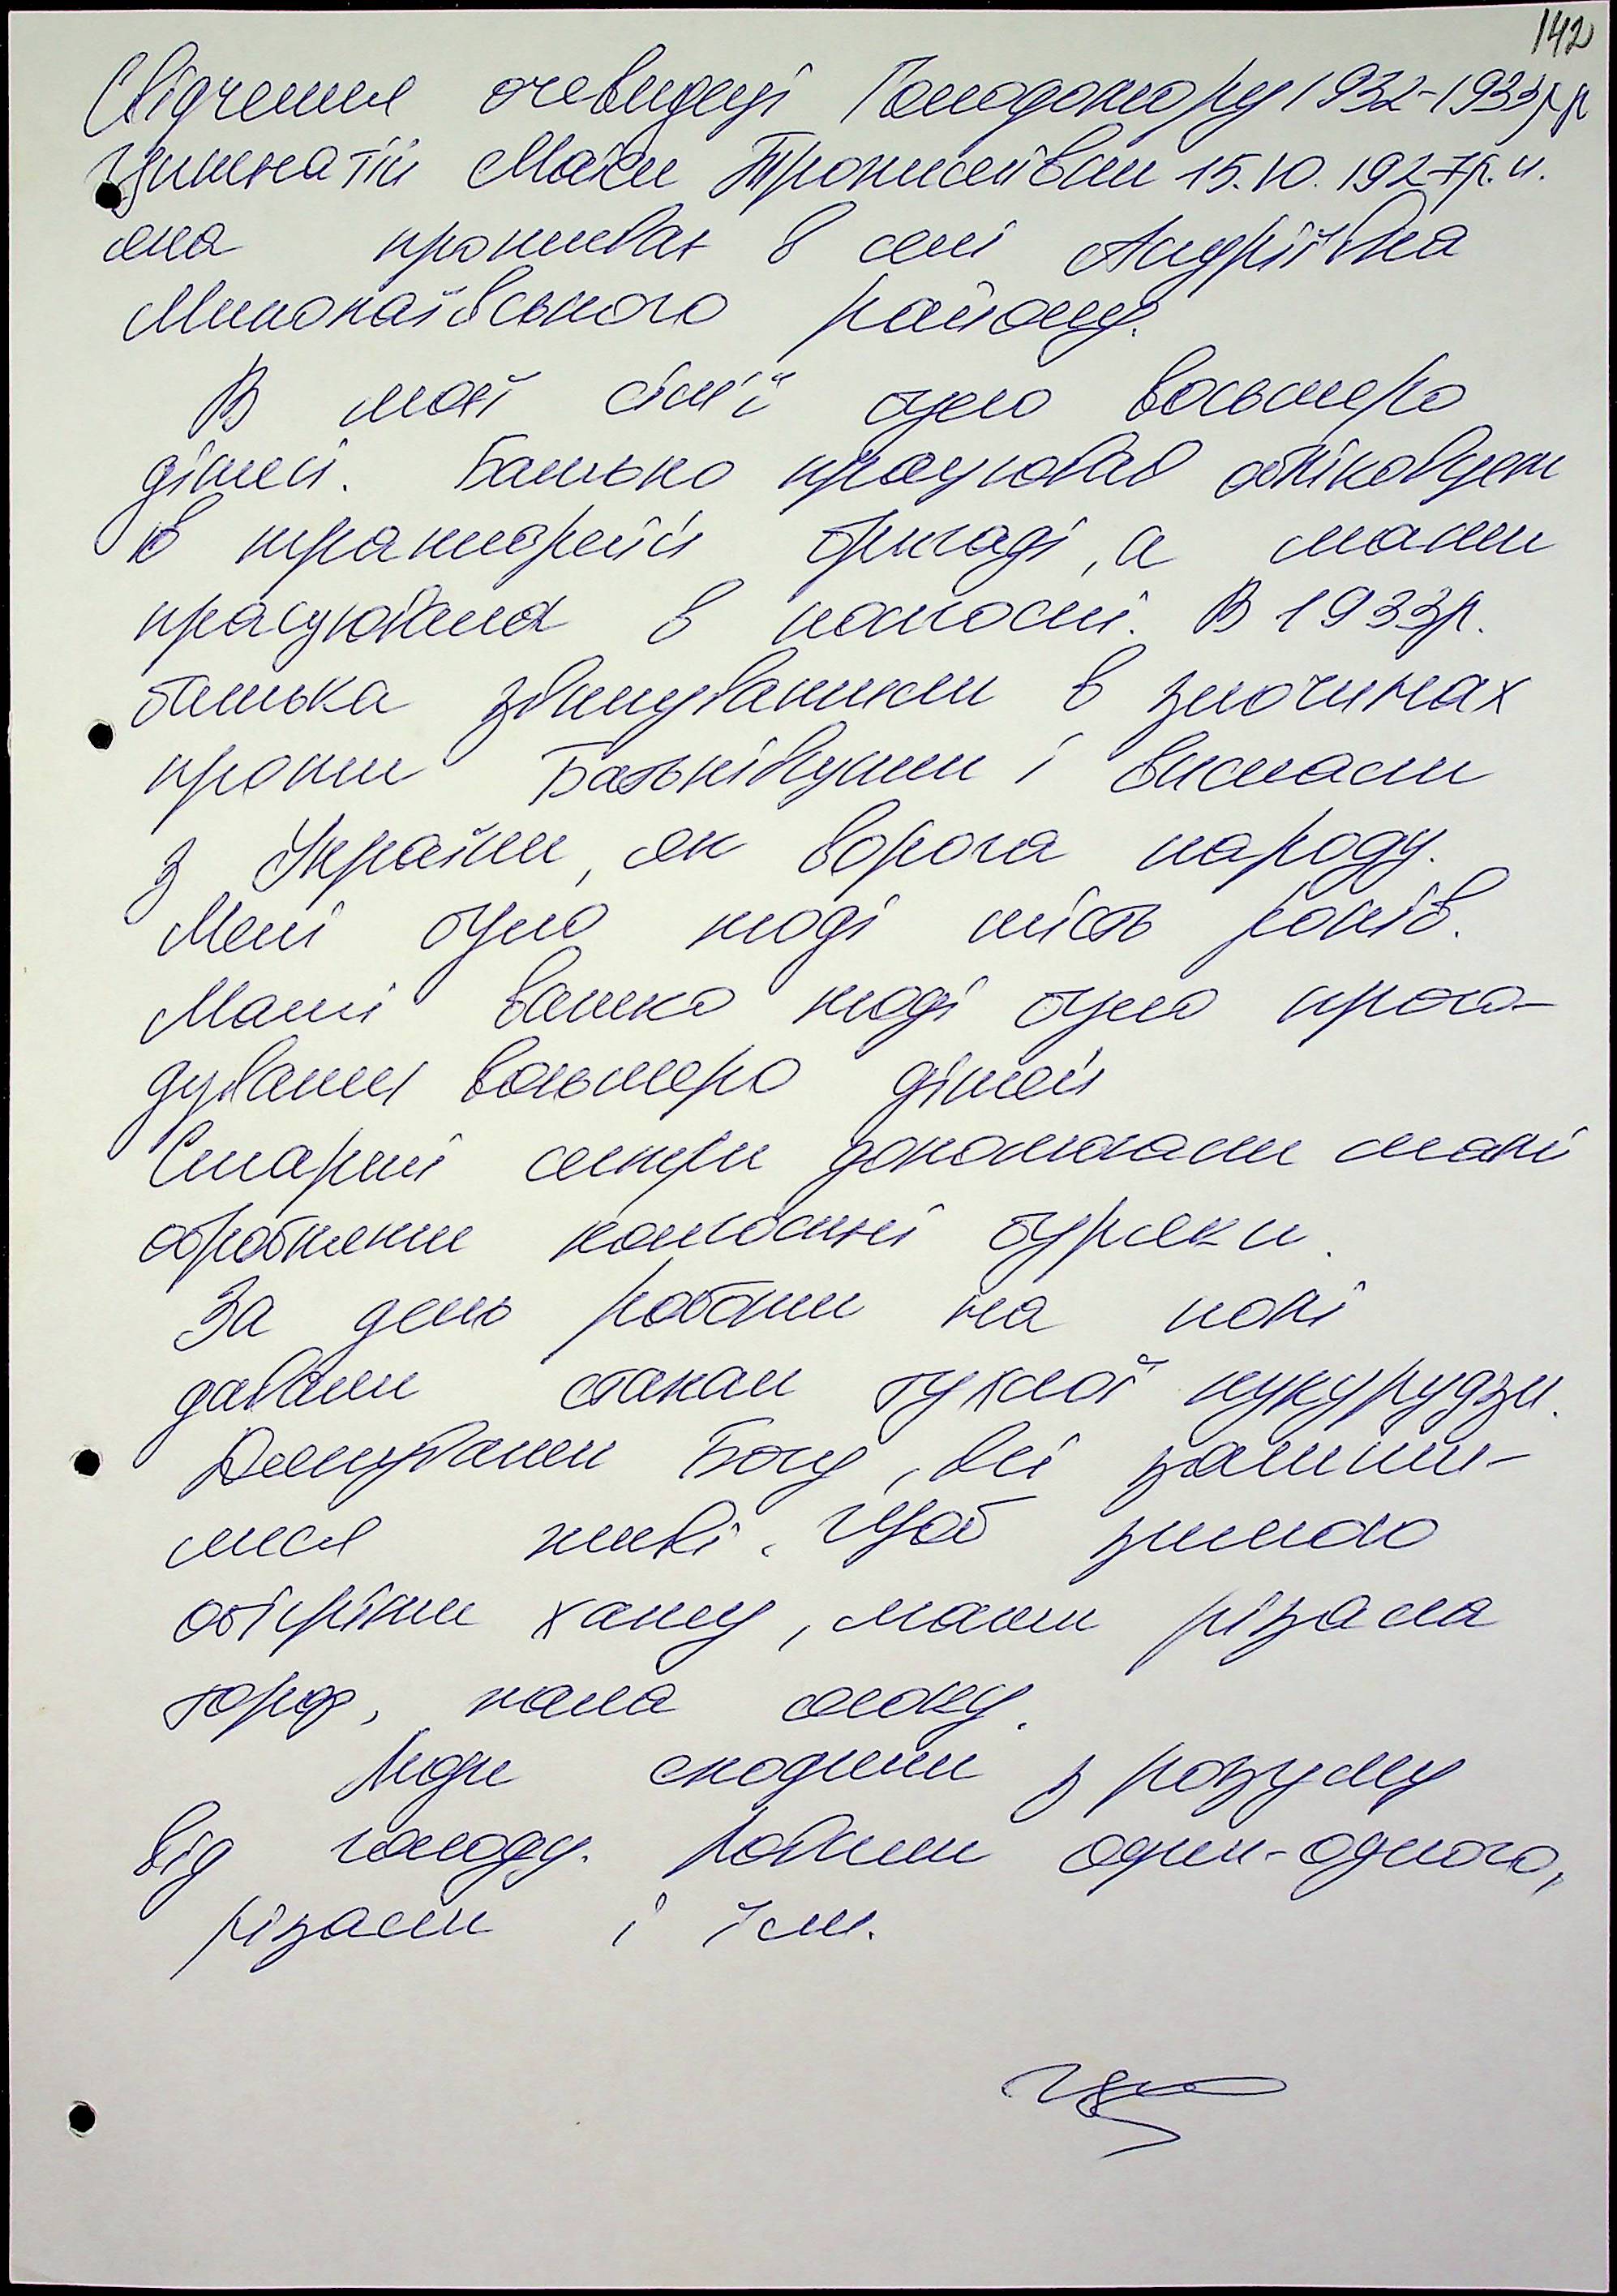 142
Свідчення очевидеці Голодомору 1932-1933рр
Маїси 15.10.1927р.н.
яка проживає в селі Андріївка
Миколаївського району.
В моїй сім'ї було восьмеро
дітей. Батько працював обліковцем
в тракторній бригаді, а мати
працювала в колгоспі. В 1933р.
батька звинуватили в злочинах
проти Батьківщини і вислали
з України, як ворога народу.
Мені було тоді шість років.
Мамі важко тоді було прого-
дувати восьмеро дітей
Старші сестри допомагали мамі
обробляти колгоспні буряки.
За день роботи на полі
давали стакан тухлої кукурудзи.
Дякувати Богу, всі залиши-
лися живі. Щоб зимою
обігріти хату, мати різала
торф, рвала осоку.
Люди сходили з розуму
від голоду. Ловили один-одного,
різали і їли.